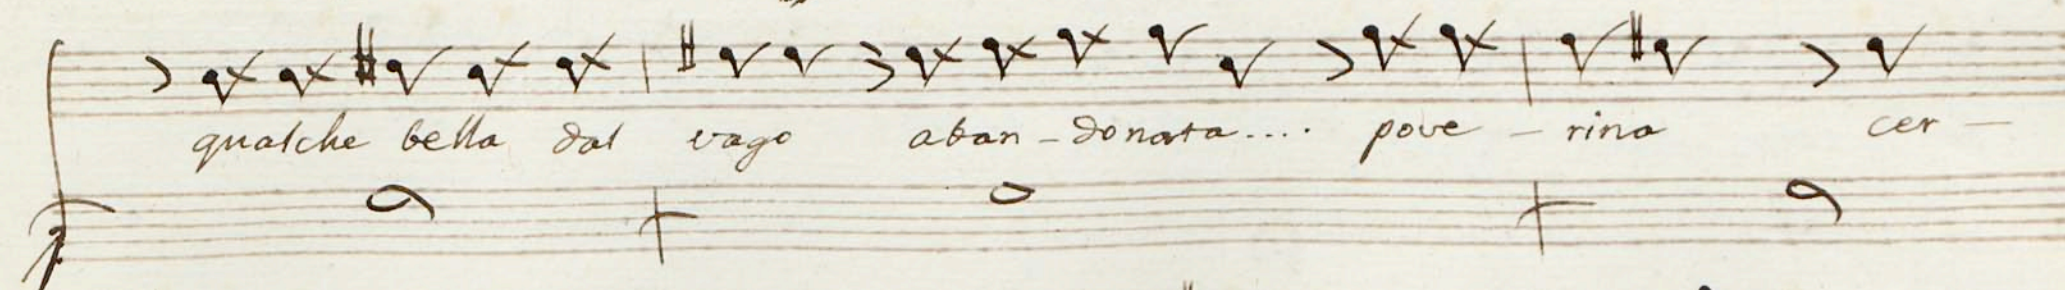 qualche bella dal vago aban - donata.... pove - rina cer -